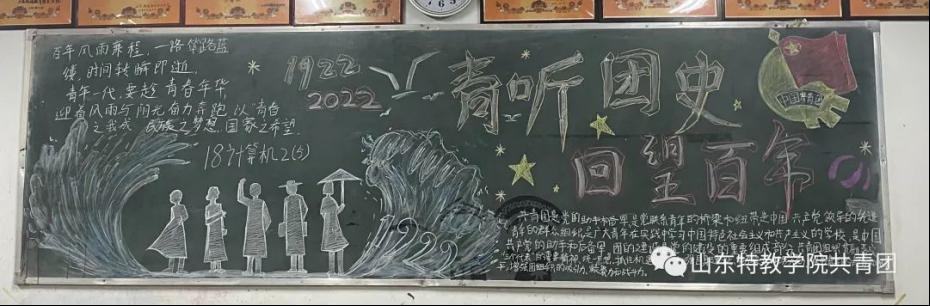 百年风雨兼程，一路筚路蓝
缕，时间转瞬即逝，
青年一代，要趁青春年华，
迎着风雨与阳光奋力奔跑，以"青春
之我成民族之梦想，国家之希望.
18计算机2(5)
1922
2022
青听团史
回望百年
中国共青团
共青团是党的助手和后备军是党联系青年的桥梁和纽带是中国共产党领导的先进
青年的群众组织是广大青年在实践中学习中国特色社会主义和共产主义的学校，是中国
共产党的助手和后备军
山东特教学院共青团